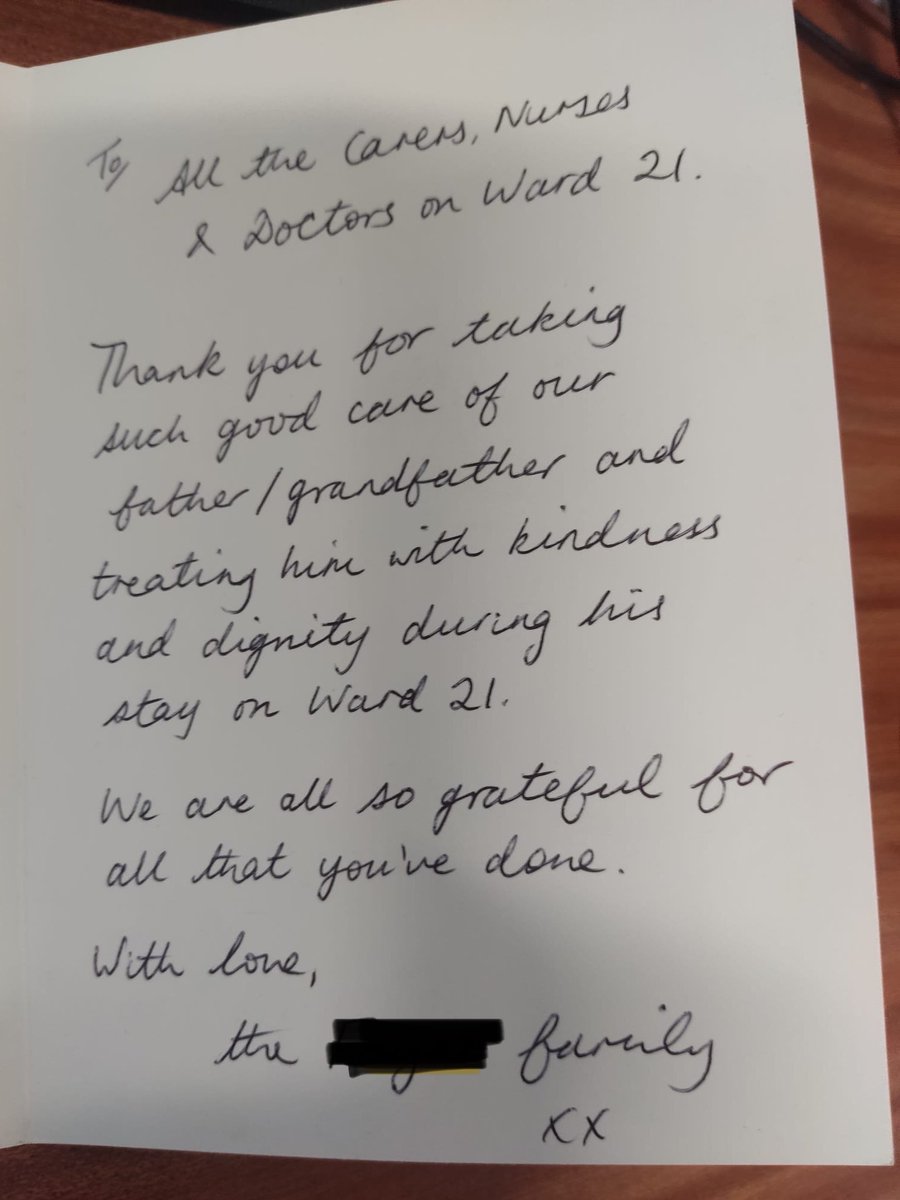 To
All the Carers, Nurses
& Doctors on Ward 21.
Thank you for taking
such good care of our
father/grandfather and
treating him with kindness
and dignity during his
stay on Ward 21.
We are all so grateful for
all that you've done.
With love,
the family
xx